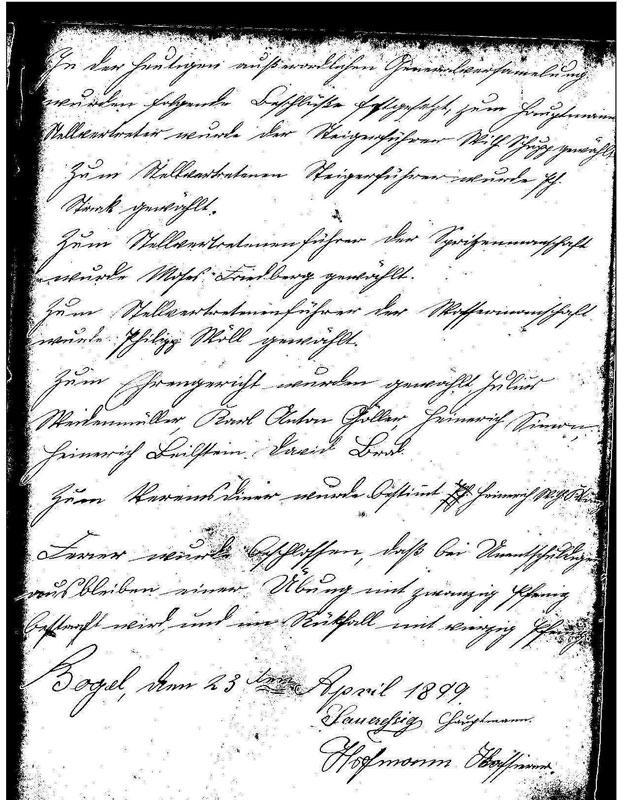 In der heutigen außerordlichen Generalversamelung
wurden folgende Beschlüße festgesetzt, zum Hauptmann
Stellvertreter wurde der Steigerführer Wilh Schupp gewählt
Zum Stellvertretenen Steigerführer wurde Ph.
Stark gewählt.
Zum Stellvertretenenführer der Spritzenmanschaft
wurde Moses Friedberg gewählt.
Zum Stellvertretenenführer der Wassermanschaft
wurde Philipp Möll gewählt.
Zum Ehrengericht wurden gewählt Julius
Weidenmüller Karl Anton Göller Heinerich Simon,
Heinerich Beilstein David
Zum Vereinsdiener wurde bestimt Heinrich
Ferner wurde beschlossen, daß bei Unentschuldigen
ausbleiben einer Übung mit zwanzig Pfennig
bestraft wird, und im Rükfall mit vierzig Pfennig
Bogel, den 23 ten April 1899
Saueressig Hauptmann.
Hofmann Kassierer.